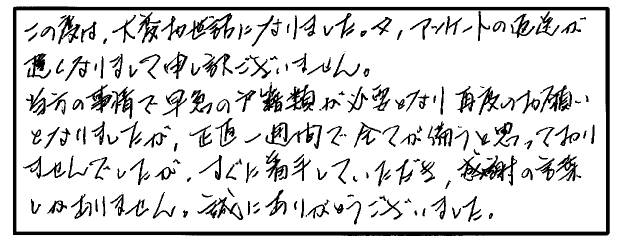 この度は、大変お世話になりました。又、アンケートの返送が
遅くなりまして申し訳ございません。
当方の事情で早急の戸籍類が必要となり再度のお願い
となりましたが、正直一週間で全てが備うと思っており
ませんでしたが、すぐに着手していただき、感謝の言葉
しかありません。誠にありがとうございました。